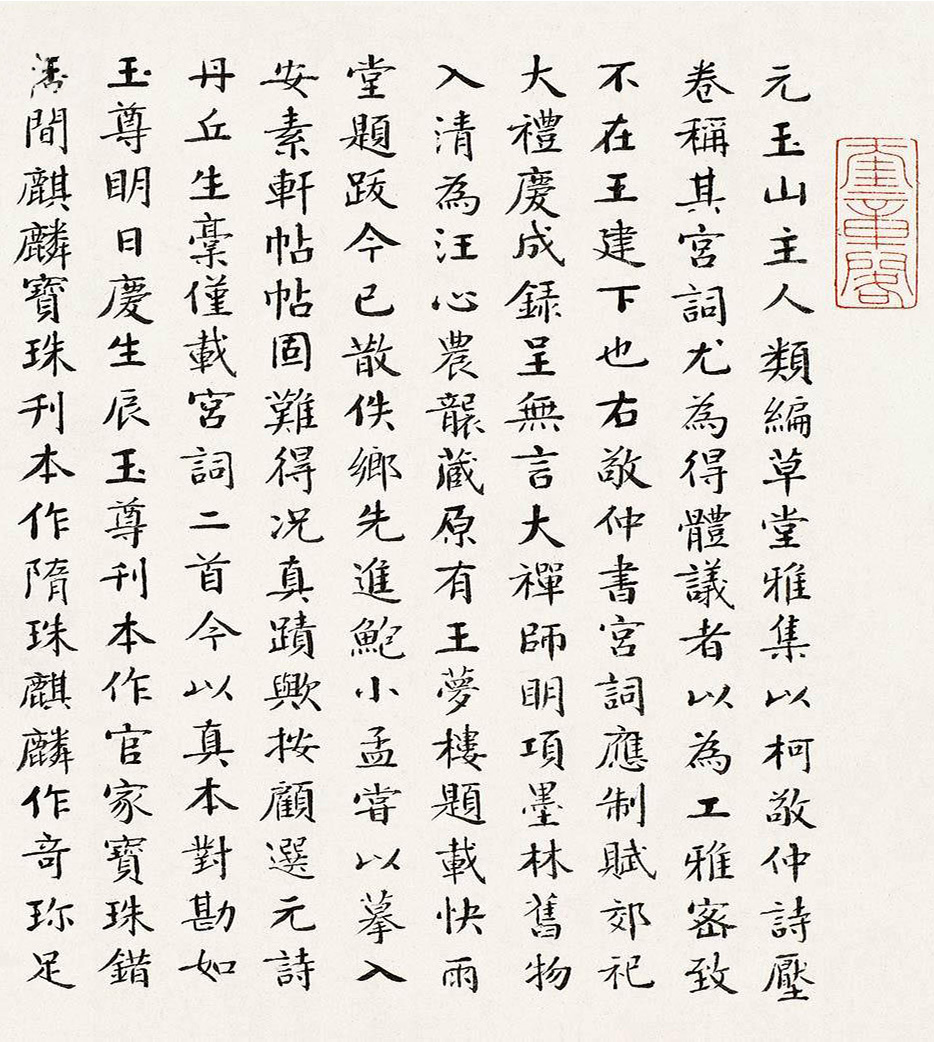 元玉山主人類編草堂雅集以柯敬仲詩壓
卷稱其宮詞尤為得體議者以為工雅密致
不在王建下也右敬仲書宮詞應制賦郊祀
大禮慶成錄呈無言大禪師明項墨林舊物
入清為汪心農襲藏原有王夢樓題載快雨
堂題跋今已散佚鄉先進鮑小孟嘗以摹入
安素軒帖帖固難得況真蹟歟按顧選元詩
丹丘生稾僅載宮詞二首今以真本對勘如
玉尊明日慶生辰玉尊刊本作官家寶珠錯
間麒麟寶珠刊本作隋珠麒麟作奇珎足